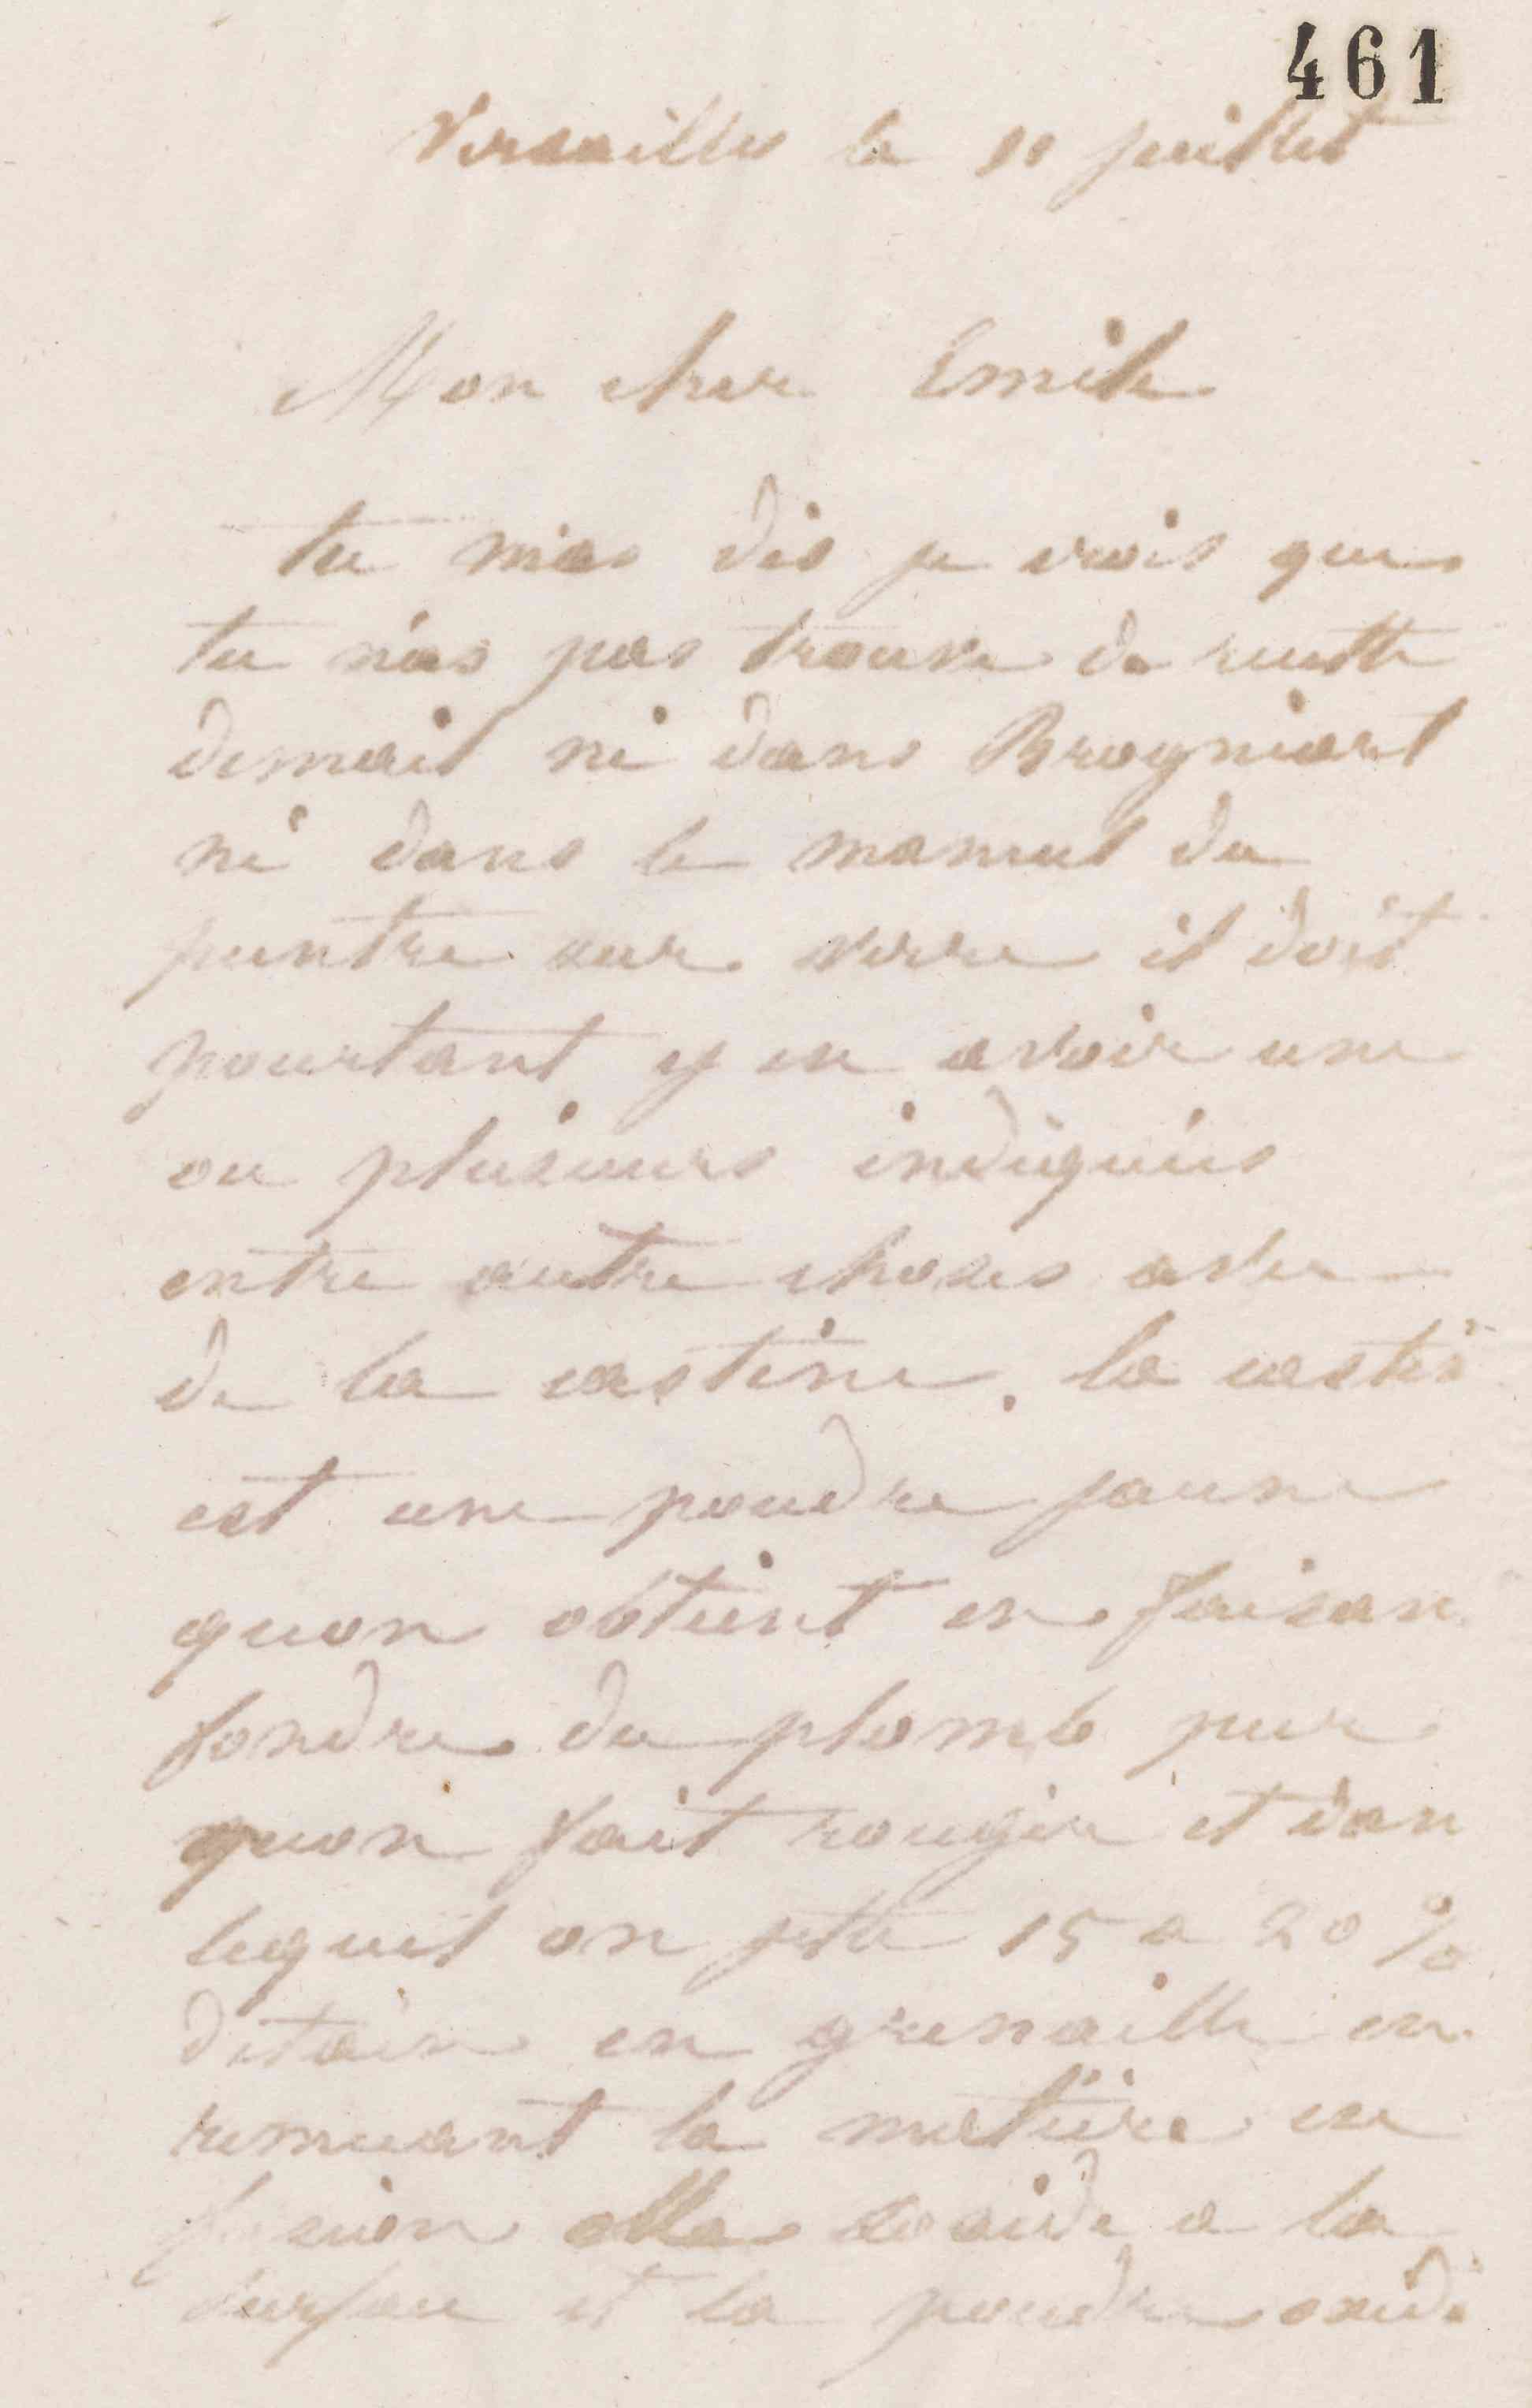 461
Versailles le 11 juillet
Mon cher Emile
tu m'as dis je crois que
tu n'as pas trouvé de recette
demail ni dans Brogniart
ni dans le manuel du
peintre sur verre il doit
pourtant y en avoir une
ou plusieurs indiquées
entre autre choses avec
de la castine. la castin
est une poudre jaune
quon obtient en faisan
fondre du plomb pur
quon fait rougir et dan
lequel on jette 15 a 20 %
detain en grenaille en
remuant la matière en
fusion elle soxide a la
surface et la poudre oxidé